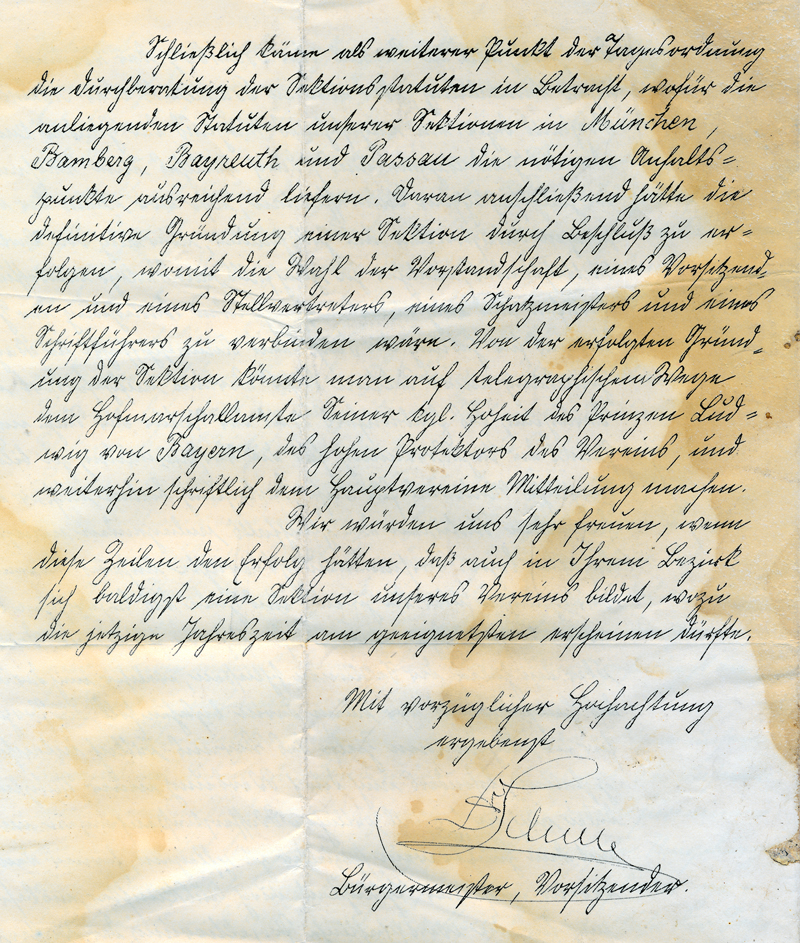 Schließlich käme als weiterer Punkt der Tagesordnung
die Durchberatung der Sektionsstatuten in Betracht, wofür die
anliegenden Statuten unserer Sektionen in München,
Bamberg, Bayreuth und Passau die nötigen Anhalts=
punkte ausreichend liefern. Daran anschließend hätte die
definitive Gründung einer Sektion durch Beschluß zu er=
folgen, womit die Wahl der Vorstandschaft, eines Vorsitzend=
en und eines Stellvertreters, eines Schatzmeisters und eines
Schriftführers zu verbinden wäre. Von der erfolgten Gründ=
ung der Sektion könnte man auf telegraphischem Wege
dem Hofmarschallamte Seiner kgl. Hoheit des Prinzen Lud=
wig von Bayern, des hohen Protektors des Vereins, und
weiterhin schriftlich dem Hauptvereine Mitteilung machen.
Wir würden uns sehr freuen, wenn
diese Zeilen den Erfolg hätten, daß auch in Ihrem Bezirk
sich baldigst eine Sektion unseres Vereins bildet, wozu
die jetzige Jahreszeit am geeignetsten erscheinen dürfte.
Mit vorzüglicher Hochachtung
ergebenst
Bürgermeister, Vorsitzender.